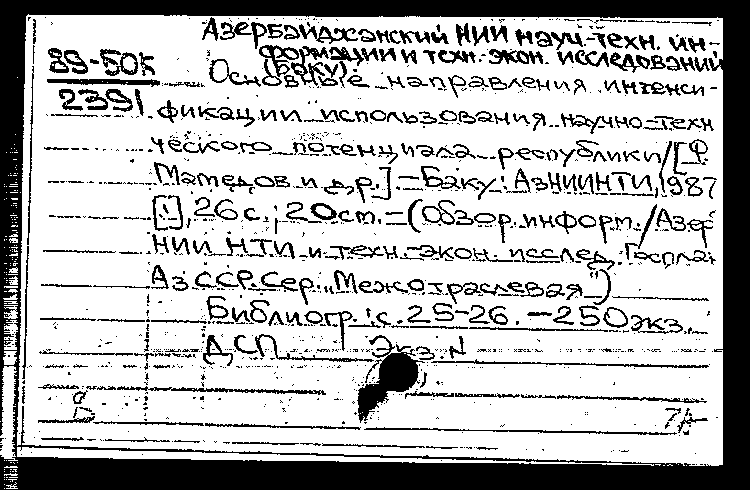 Азербайджанский НИИ науч.-техн. ин-
формации и техн.-экон. исследований
(Баку).
89-50к
2391
Основные направления интенси-
фикации использования научно-техн
ческого потенциала республики/[Ф.
Мамедов и др.].-Баку: АзНИИНТИ, 1987
[1], 26 с.; 20 см.-(Обзор. информ./Азер
НИИ НТИ и техн.-экон. исслед. Госплан
АзССР. Сер. „Межотраслевая")
Библиогр.: с. 25-26. - 250 экз.
ДСП. Экз. N